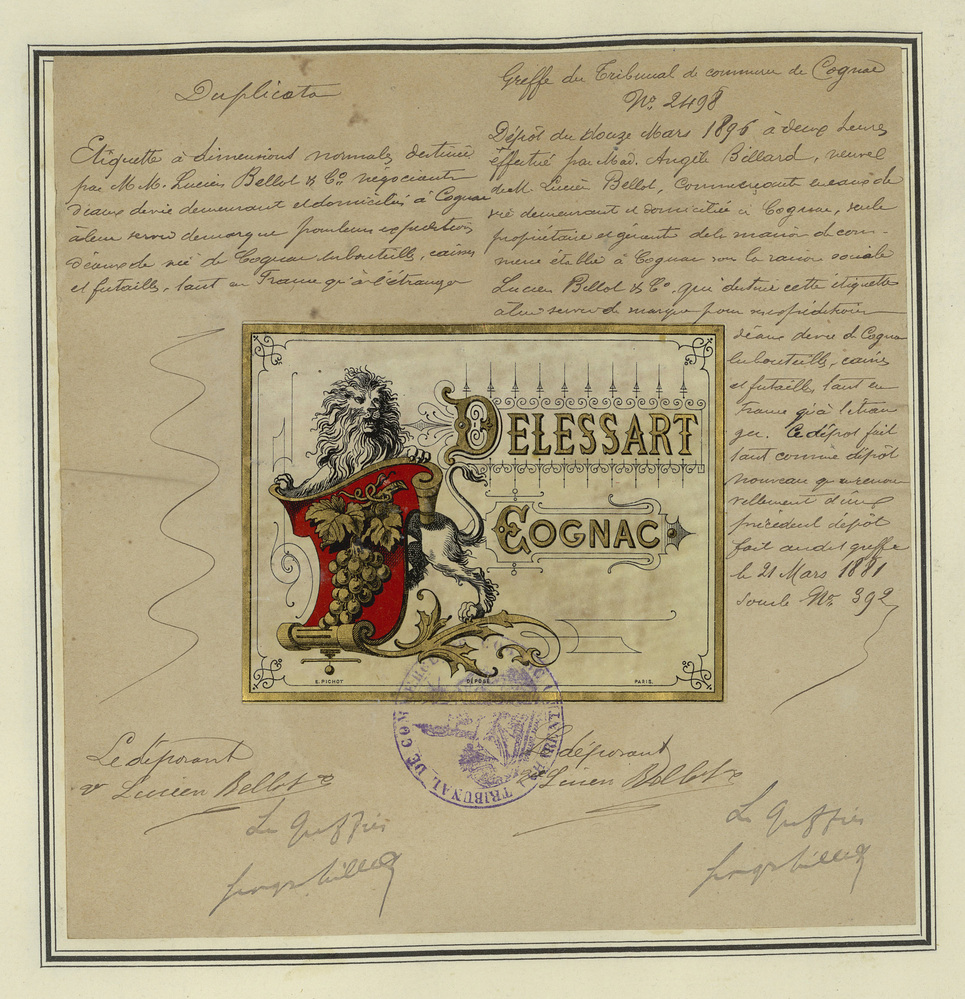 Duplicata
Etiquette à dimensions normales destinée
par M.M. Lucien Bellot & Cº négociants
d'eaux de vie demeurant et domiciliés à Cognac
à leur servir de marque pour leurs expéditions
d'eaux de vie de Cognac en bouteilles, caisses
et futailles, tant en France qu'à l'étranger
Greffe du Tribunal de commerce de Cognac
Nº 2498
Dépôt du douze Mars 1896 à deux heures
effectué par Mad. Angèle Billard, veuve
de M. Lucien Bellot, Commerçante en eaux de
vie demeurant et domiciliée à Cognac, seule
propriétaire et gérant de la maison de com-
merce établie à Cognac sous la raison sociale
Lucien Bellot & Cº. qui destine cette étiquette
à leur servir de marque pour ses expéditions
d'eaux de vie de Cognac
en bouteilles, caisses
et futailles, tant en
France qu'à l'étran
ger. Ce dépôt fait
tant comme dépôt
nouveau qu'en renou
vellement d'un
précédent dépôt
fait au dit greffe
le 21 Mars 1881
sous le Nº 392
DELESSART
COGNAC
E. PICHOT
DÉPOSÉ
PARIS.
TRIBUNAL DE COMMERCE
CHARENTE
Le déposant
Vve Lucien Bellot
Le Greffier
Le déposant
Vve Lucien Bellot
Le Greffier